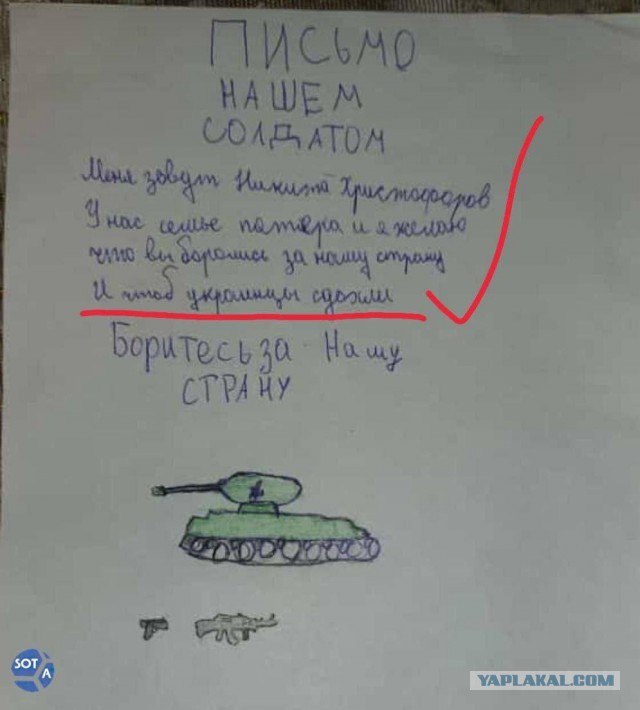 ПИСЬМО
НАШЕМ
СОЛДАТОМ
Меня зовут Никита Христофоров
У нас семье пятера и я желаю
что вы боролись за нашу страну
И чтоб украинцы сдохли
Боритесь за Нашу
СТРАНУ
SOTA
YAPLAKAL.COM